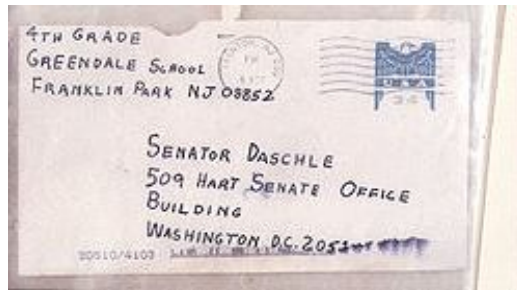 4TH GRADE
GREENDALE SCHOOL
FRANKLIN PARK NJ 08852
USA
34
SENATOR DASCHLE
509 HART SENATE OFFICE
BUILDING
WASHINGTON D.C. 2051
20510/4103